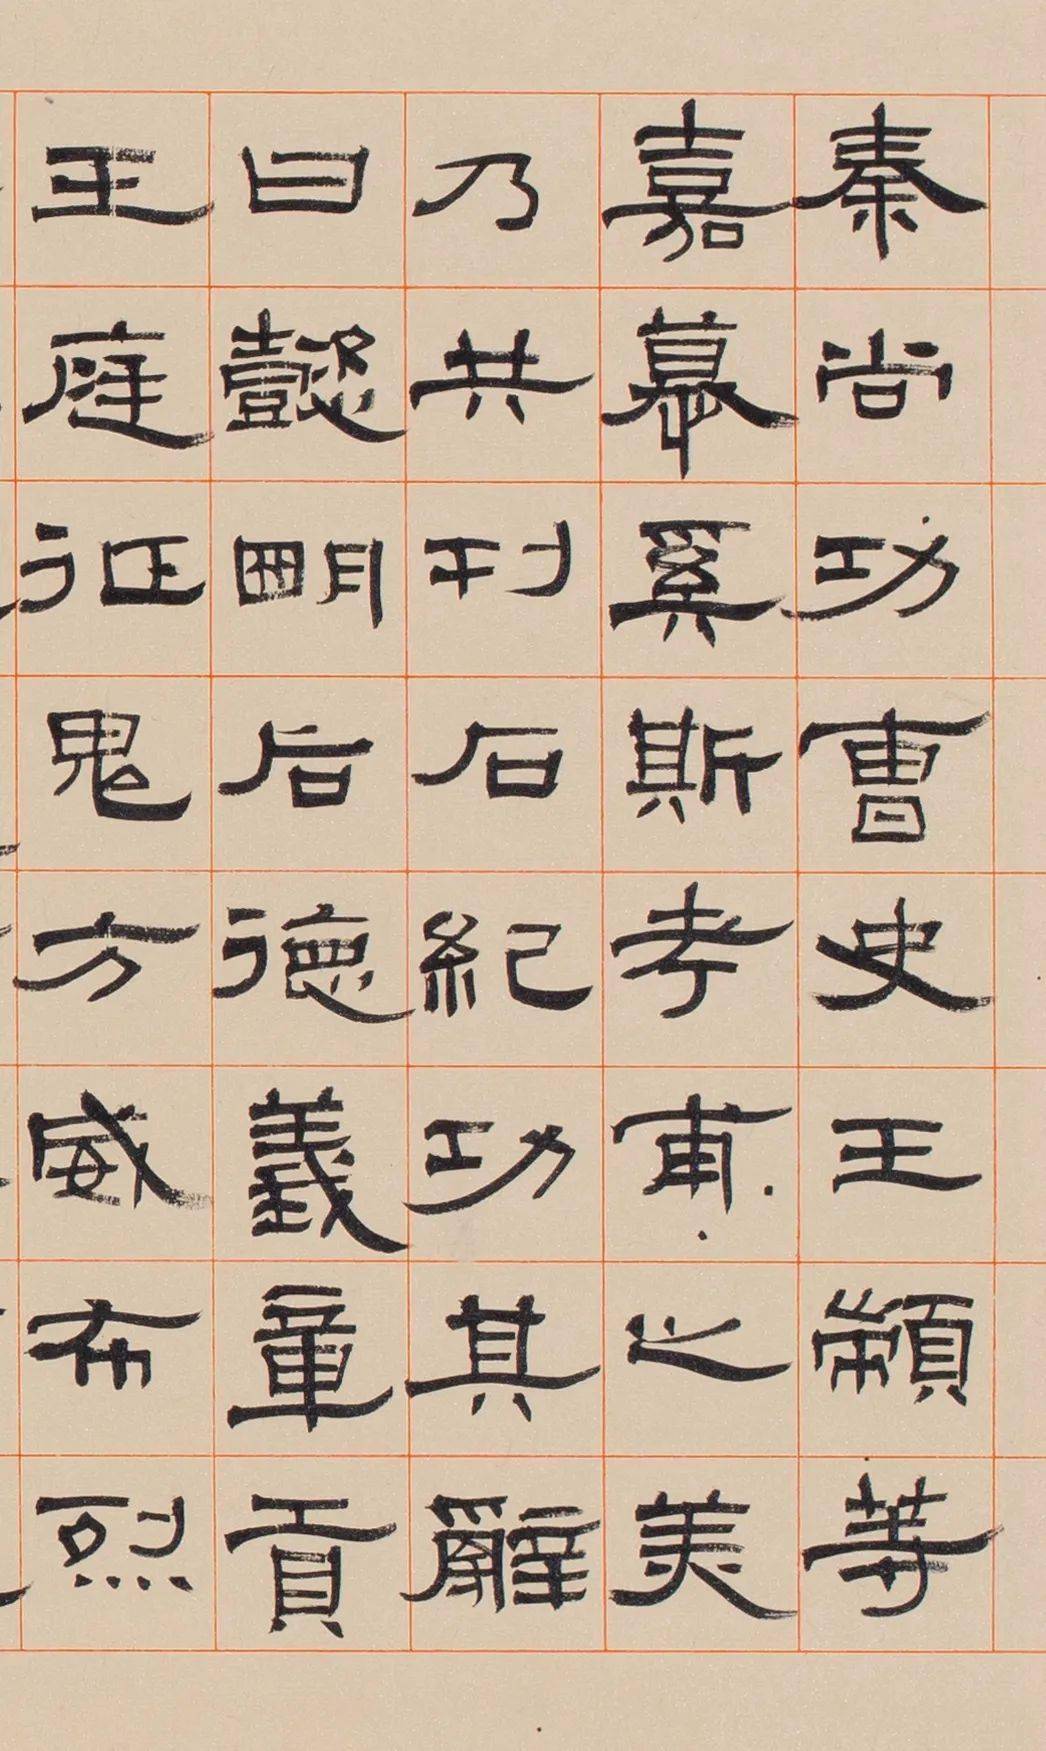 秦尚功曹史王顓等
嘉慕奚斯考甫之美
乃共刊石紀功其辭
曰懿明后德義章貢
王庭征鬼方威布烈